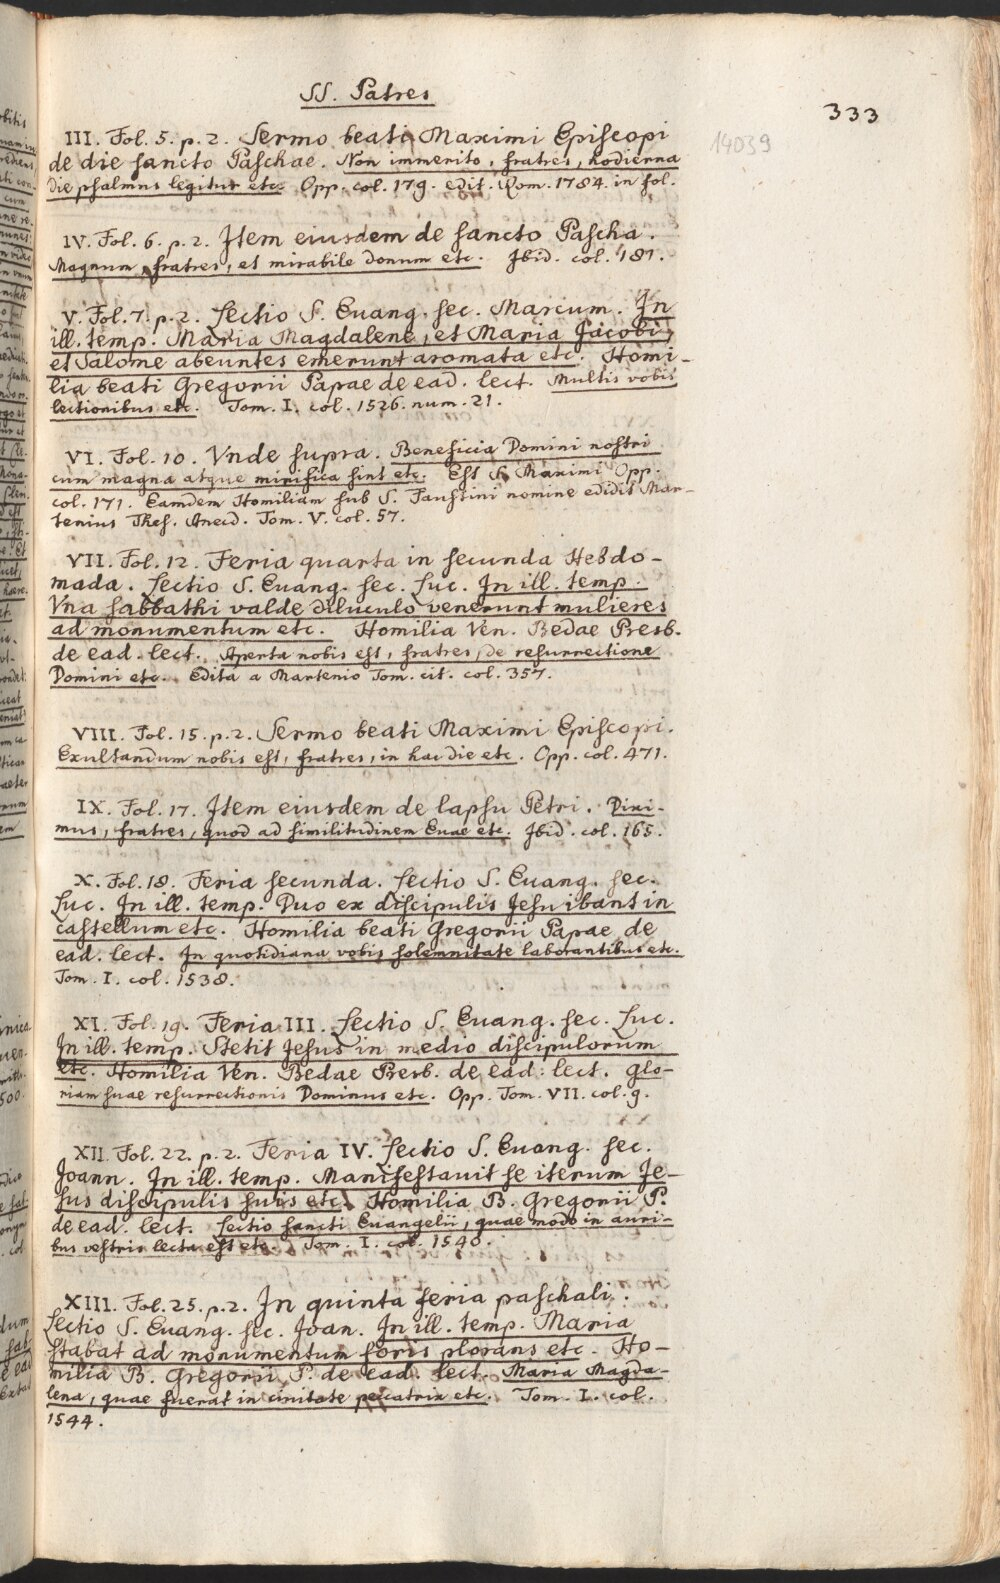 SS. Patres
333
14039
III. Fol. 5. p. 2. Sermo beati Maximi Episcopi
de die sancto Paschae. Non immerito, fratres, hodierna
die psalmus legitur etc. Opp. col. 179. edit. Rom. 1784. in fol.
IV. Fol. 6. p. 2. Item eiusdem de sancto Pascha.
Magnum, fratres, et mirabile donum etc. Ibid. col. 181.
V. Fol. 7. p. 2. Lectio S. Euang. sec. Marcum. In
ill. temp. Maria Magdalene, et Maria Jacobi,
et Salome abeuntes emerunt aromata etc. Homi-
lia beati Gregorii Papae de ead. lect. Multis vobis
lectionibus etc. Tom. I. col. 1526. num. 21.
VI. Fol. 10. Vnde supra. Beneficia Domini nostri
cum magna atque mirifica sint etc. Est S. Maximi Opp.
col. 171. Eamdem Homiliam sub S. Faustini nomine edidit Mar-
tenius Thes. Anecd. Tom. V. col. 57.
VII. Fol. 12. Feria quarta in secunda Hebdo-
mada. Lectio S. Euang. sec. Luc. In ill. temp.
Vna sabbathi valde diluculo venerunt mulieres
ad monumentum etc. Homilia Ven. Bedae Presb.
de ead. lect. Aperta nobis est, fratres, de resurrectione
Domini etc. Edita a Martenio Tom. cit. col. 357.
VIII. Fol. 15. p. 2. Sermo beati Maximi Episcopi.
Exultandum nobis est, fratres, in hac die etc. Opp. col. 471.
IX. Fol. 17. Item eiusdem de lapsu Petri. Dixi-
mus, fratres, quod ad similitudinem Euae etc. Ibid. col. 165.
X. Fol. 18. Feria secunda. Lectio S. Euang. sec.
Luc. In ill. temp. Duo ex discipulis Jesu ibant in
castellum etc. Homilia beati Gregorii Papae de
ead. lect. In quotidiana vobis solemnitate laborantibus etc.
Tom. I. col. 1538.
XI. Fol. 19. Feria III. Lectio S. Euang. sec. Luc.
In ill. temp. Stetit Jesus in medio discipulorum
etc. Homilia Ven. Bedae Presb. de ead. lect. Glo-
riam suae resurrectionis Dominus etc. Opp. Tom. VII. col. 9.
XII. Fol. 22. p. 2. Feria IV. Lectio S. Euang. sec.
Joann. In ill. temp. Manifestauit se iterum Je-
sus discipulis suis etc. Homilia B. Gregorii P.
de ead. lect. Lectio sancti Euangelii, quae modo in auri-
bus vestris lecta est etc. Tom. I. col. 1540.
XIII. Fol. 25. p. 2. In quinta feria paschali.
Lectio S. Euang. sec. Joan. In ill. temp. Maria
stabat ad monumentum foris plorans etc. Ho-
milia B. Gregorii P. de ead. lect. Maria Magda-
lena, quae fuerat in ciuitate peccatrix etc. Tom. I. col.
1544.